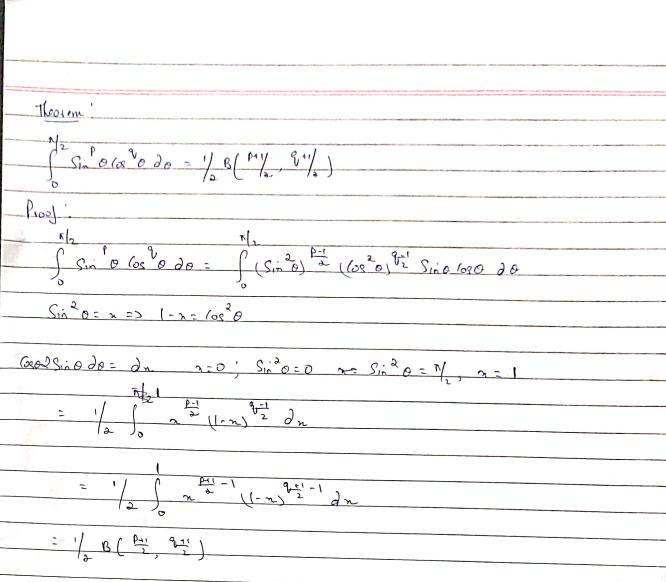 Theorem :
∫₀^{π/2} Sin^p θ Cos^q θ dθ = 1/2 B(p+1/2, q+1/2)
Proof :
∫₀^{π/2} Sin^p θ Cos^q θ dθ = ∫₀^{π/2} (Sin²θ)^{p-1/2} (Cos²θ)^{q-1/2} Sinθ Cosθ dθ
Sin²θ = x => 1-x = Cos²θ
Cosθ2Sinθ dθ = dx x=0 ; Sin²θ=0 x= Sin²θ = π/2, x = 1
= 1/2 ∫₀^1 x^{p-1/2} (1-x)^{q-1/2} dx
= 1/2 ∫₀^1 x^{p+1/2 -1} (1-x)^{q+1/2 -1} dx
= 1/2 B(p+1/2, q+1/2)